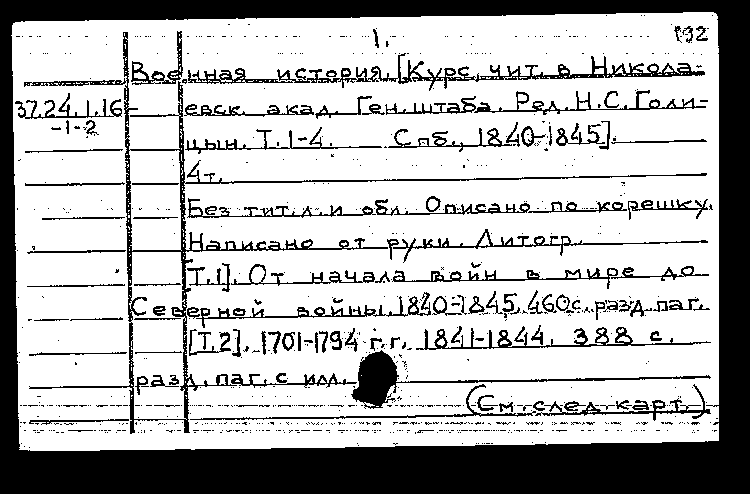 1.
192
Военная история. [Курс, чит. в Никола-
37.24.1.16-
-1-2
евск. акад. Ген. штаба. Ред. Н.С. Голи-
цын. Т. 1-4. Спб., 1840-1845].
4т.
Без тит. л. и обл. Описано по корешку.
Написано от руки. Литогр.
[Т.1]. От начала войн в мире до
Северной войны. 1840-1845. 460с. разд. паг.
[Т.2]. 1701-1794 г.г. 1841-1844. 388 с.
разд. паг. с илл.
(См. след. карт.)